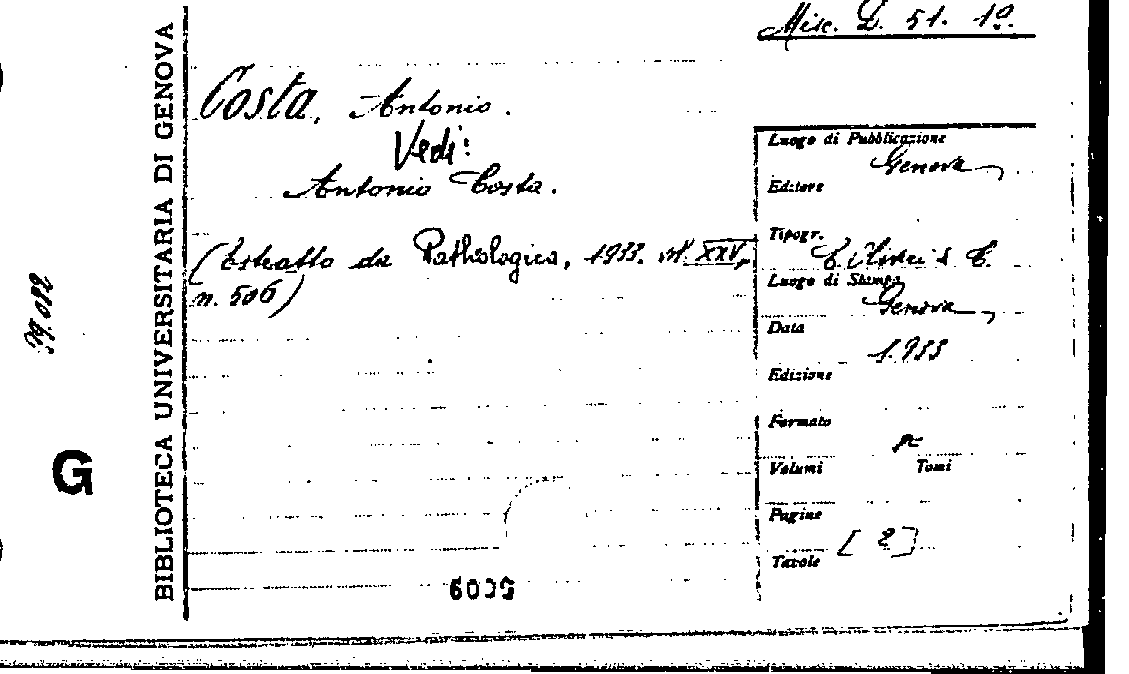 Misc. D. 51. 1º.
BIBLIOTECA UNIVERSITARIA DI GENOVA
Costa, Antonio.
Vedi:
Antonio Costa.
(Estratto da Pathologica, 1933. vol. XXV,
n. 506)
Luogo di Pubblicazione
Genova
Editore
Tipogr.
Luogo di Stampa
Genova
Data
1933
Edizione
Formato
Volumi Tomi
Pagine
[2]
Tavole
G